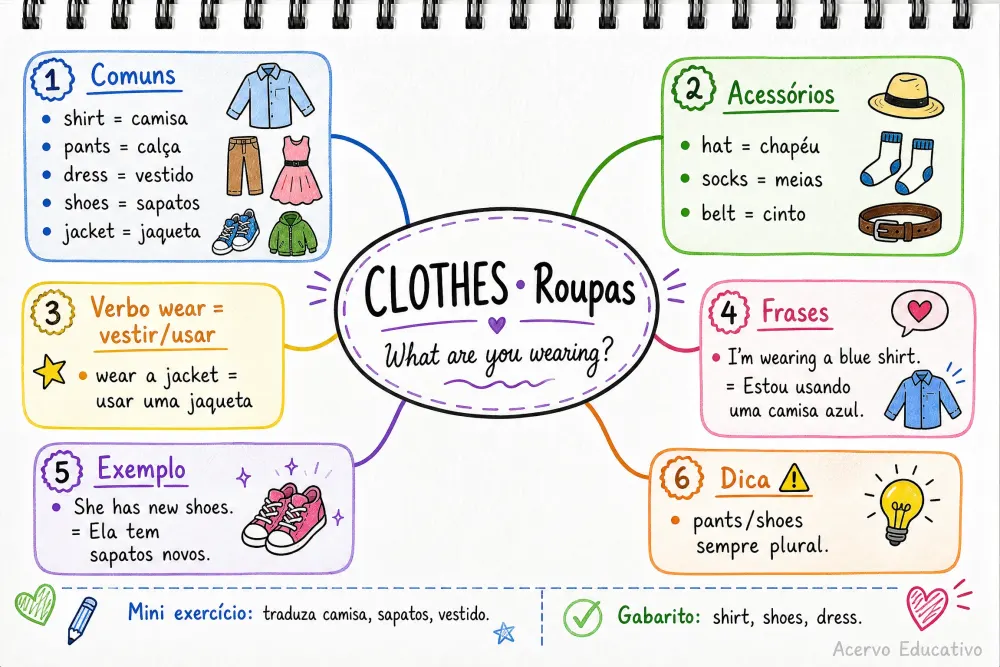 1 Comuns
• shirt = camisa
• pants = calça
• dress = vestido
• shoes = sapatos
• jacket = jaqueta
2 Acessórios
• hat = chapéu
• socks = meias
• belt = cinto
CLOTHES • Roupas
What are you wearing?
3 Verbo wear =
vestir/usar
• wear a jacket =
usar uma jaqueta
4 Frases
• I'm wearing a blue shirt.
= Estou usando
uma camisa azul.
5 Exemplo
• She has new shoes.
= Ela tem
sapatos novos.
6 Dica
• pants/shoes
sempre plural.
Mini exercício: traduza camisa, sapatos, vestido.
Gabarito: shirt, shoes, dress.
Acervo Educativo